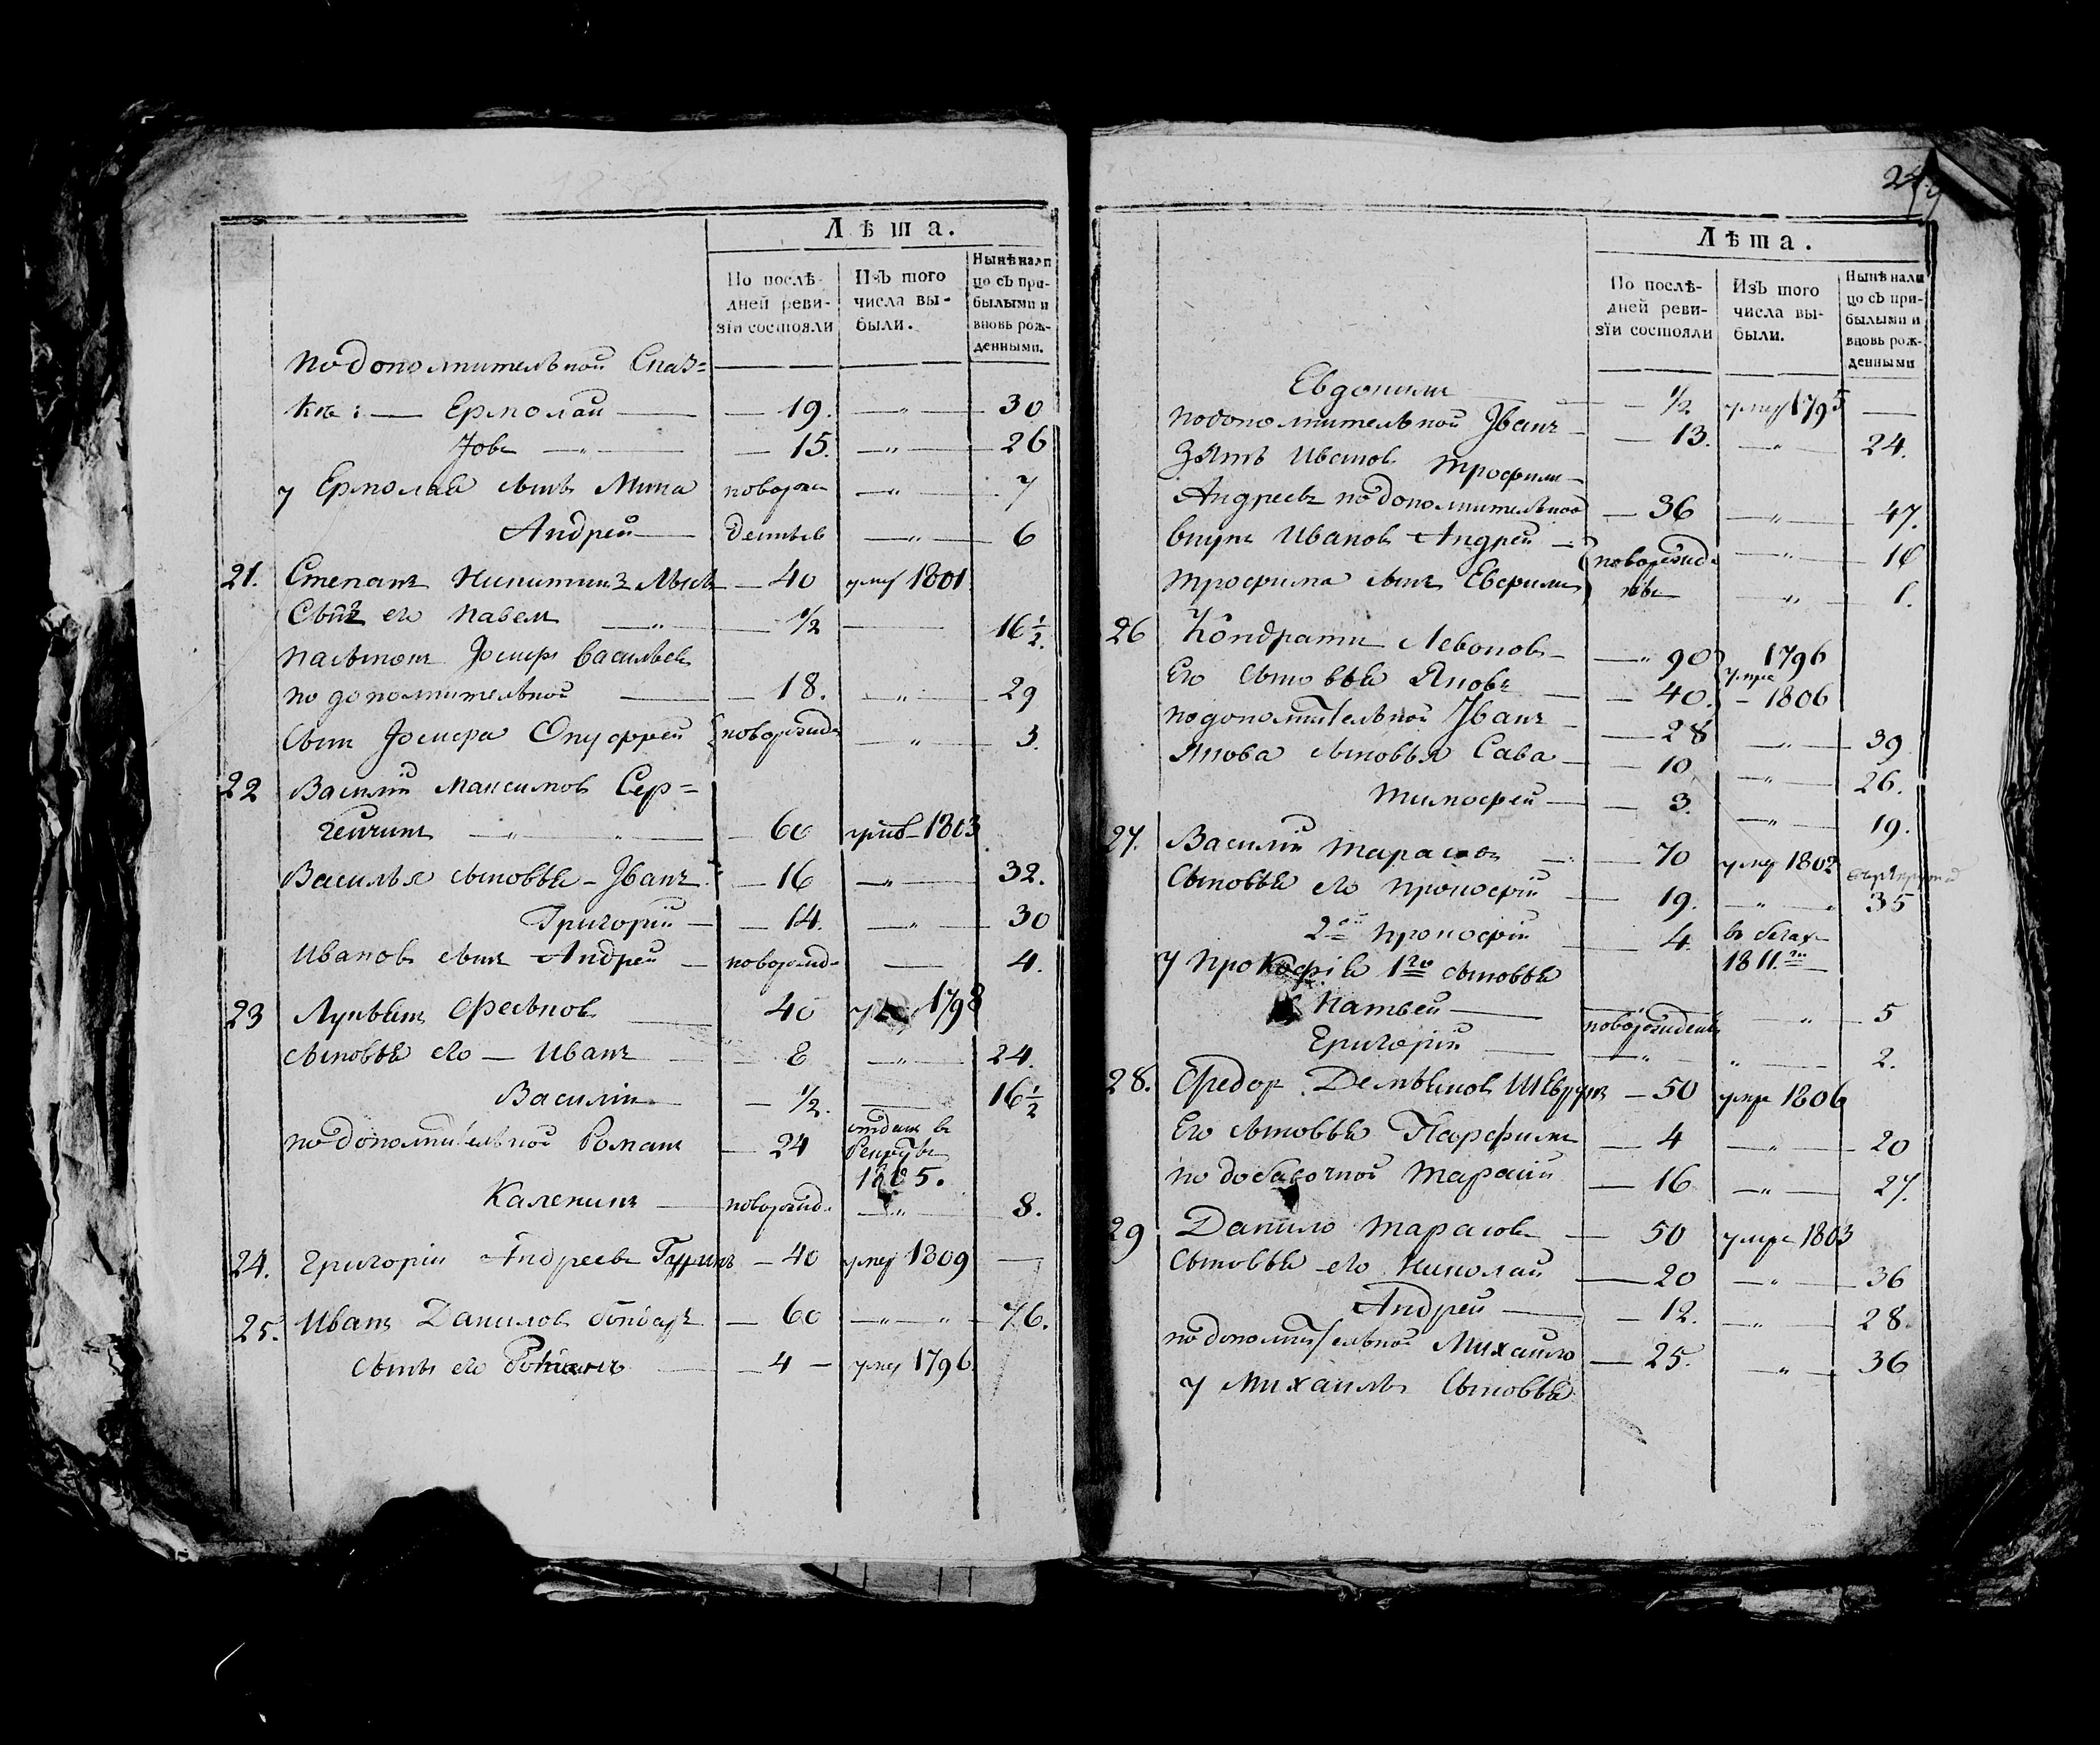 Лѣта.
По послѣ-
дней реви-
зїи состояли
Изъ того
числа вы-
были.
Нынѣ нали
цо съ при-
былыми и
вновь рож-
денными.
по дополнительной Сказ=
кѣ: — Ермолай — 19. — „ — 30
Іовъ — „ — 15. — „ — 26
у Ермолая сынъ Мина новорож — „ — 7
Андрей — денныя — „ — 6
21. Степанъ Никитинъ — 40 умер 1801
Сынъ его Павелъ — „ — 1/2 — 16 1/2.
Іосифъ Васильевъ
по дополнительной — 18. — „ — 29
сынъ Іосифа Онуфрей новорожд — „ — 3.
22 Василій Максимовъ Сер=
— „ — „ — 60 — 1803
Василья сыновья – Іванъ — 16 — „ — 32.
Григорій — 14. — „ — 30
Иванов сынъ Андрей — новорожд — 4.
23 Лукьянъ — 40 1798
сыновья его — Иванъ — 8 — „ — 24.
Василій — 1/2. — 16 1/2
по дополнительной Романъ — 24 отдан в
Рекруты
1805.
Каленикъ — новорожд. — „ — 8.
24. Григорій Андреевъ — 40 умер 1809 —
25. Иванъ Даниловъ Бондарь — 60 — „ — „ — 76.
сынъ его — 4 — умер 1796.
24
Лѣта.
По послѣ-
дней реви-
зїи состояли
Изъ того
числа вы-
были.
Нынѣ нали
цо съ при-
былыми и
вновь рож-
денными
Евдокимъ — 1/2 умер 1795 —
по дополнительной Іванъ — 13. — „ — 24.
Зять Иванов Трофим —
Андреевъ по дополнительной — 36 — „ — 47.
внукъ Иванов Андрей — новорожд — „ — 10
Трофима сынъ — „ — 1.
26 Кондратий Левонов — „ 90 1796
Его сыновья Яковъ — 40. умре – 1806
по дополнительной Іванъ — 28 — „ — 39
Якова сыновья Сава — 10 — „ — 26.
Тимофей — 3. — „ — 19.
27. Василій Тарасовъ — 70 умер 1802
сыновья его Прокофій — 19. — „ — „ 35
2ой Прокофій — 4. в бегах
1811.го
у Прокофія 1го сыновья
Матвей — новорожденныя — „ — 5
Григорій — „ — „ — 2.
28. Федор Демьянов — 50 умре 1806
Его сыновья Парфимъ — 4 — „ — 20
по добавочной Тарасій — 16 — „ — 27.
29 Данило Тарасовъ — 50 умре 1803
сыновья его Николай — 20 — „ — 36
Андрей — 12. — „ — 28.
по дополнительной Михайло — 25. — „ — 36
у Михаила сыновья